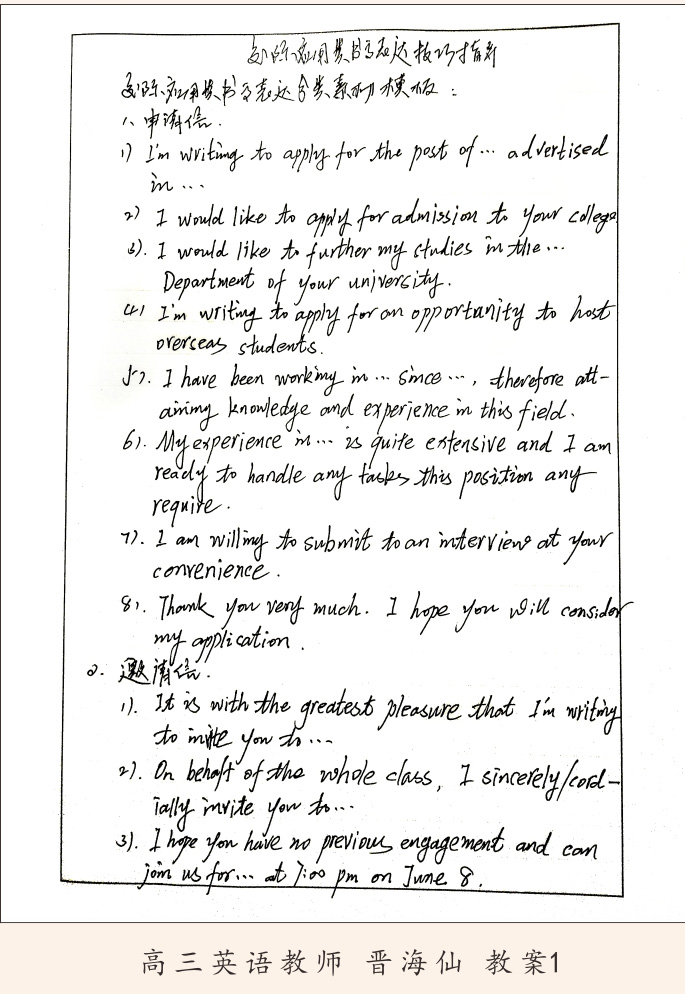 交际应用类书面表达技巧指南
交际应用类书面表达分类素材模板：
1、申请信.
1) I'm writing to apply for the post of … advertised
in …
2) I would like to apply for admission to your college
3). I would like to further my studies in the …
Department of your university.
4) I'm writing to apply for an opportunity to host
overseas students.
5). I have been working in … since …, therefore att-
aining knowledge and experience in this field.
6). My experience in … is quite extensive and I am
ready to handle any tasks this position any
require.
7). I am willing to submit to an interview at your
convenience.
8). Thank you very much. I hope you will consider
my application.
2. 邀请信.
1). It is with the greatest pleasure that I'm writing
to invite you to …
2). On behalf of the whole class, I sincerely/cord-
ially invite you to …
3). I hope you have no previous engagement and can
join us for … at 7:00 pm on June 8.
高三英语教师 晋海仙 教案1